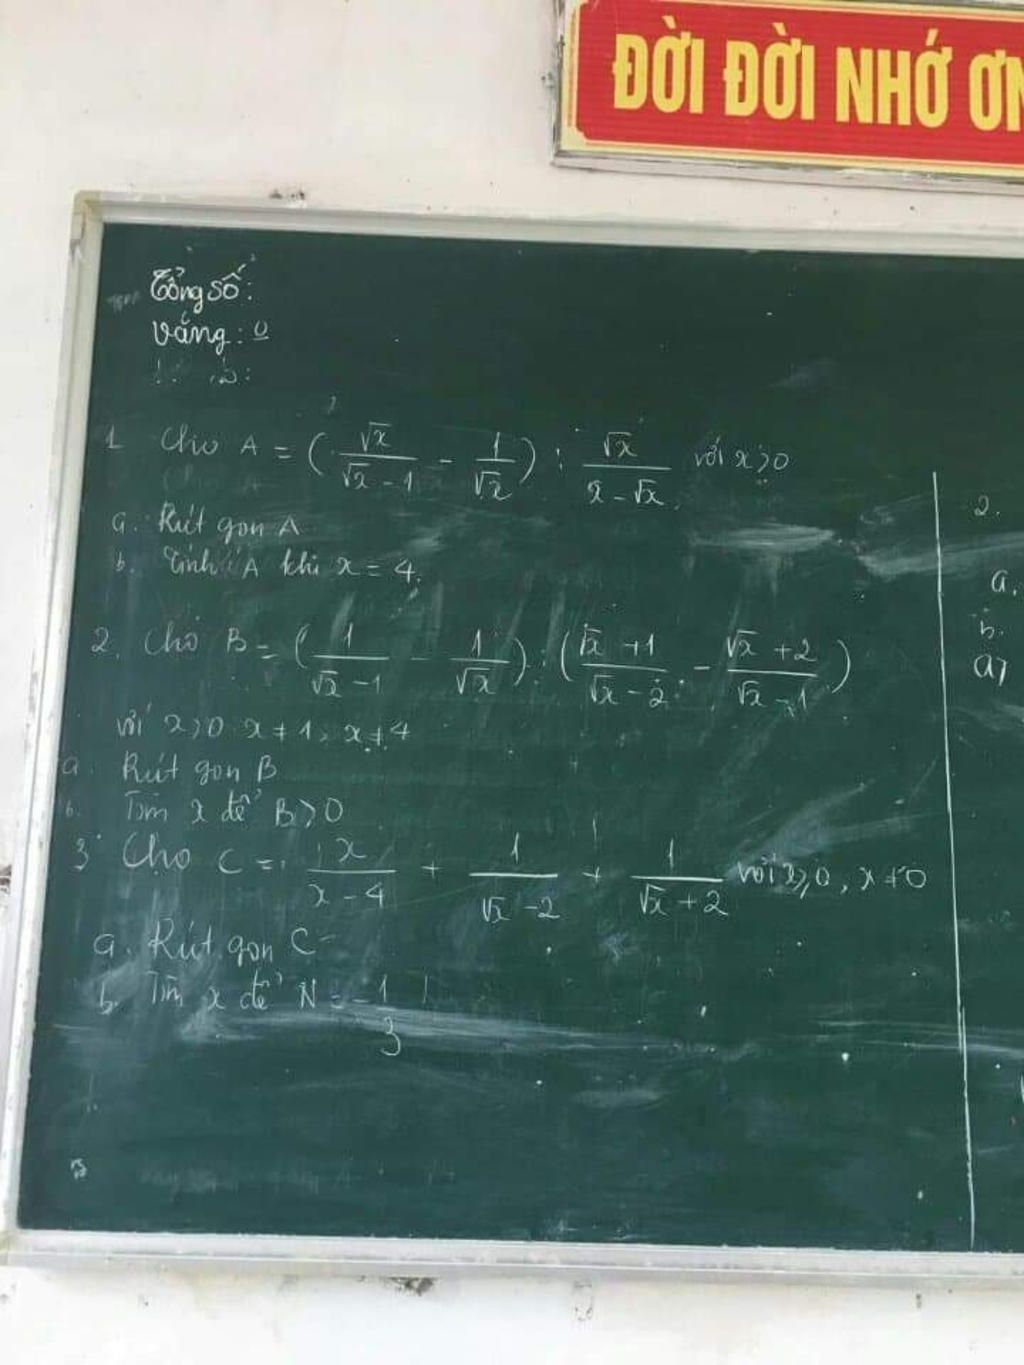 ĐỜI ĐỜI NHỚ ƠN
Tổng số:
Vắng: 0
1 Cho A = ( √x / (√x - 1) - 1 / √x ) : √x / (x - √x) với x > 0
a. Rút gọn A
b. Tính A khi x = 4.
2. Cho B = ( 1 / (√x - 1) - 1 / √x ) : ( (√x + 1) / (√x - 2) - (√x + 2) / (√x - 1) )
với x > 0 x ≠ 1, x ≠ 4
a. Rút gọn B
b. Tìm x để B > 0
3 Cho C = x / (x - 4) + 1 / (√x - 2) + 1 / (√x + 2) với x ≥ 0, x ≠ 0
a. Rút gọn C
b. Tìm x để N = -1 / 3
2.
a.
b.
a)